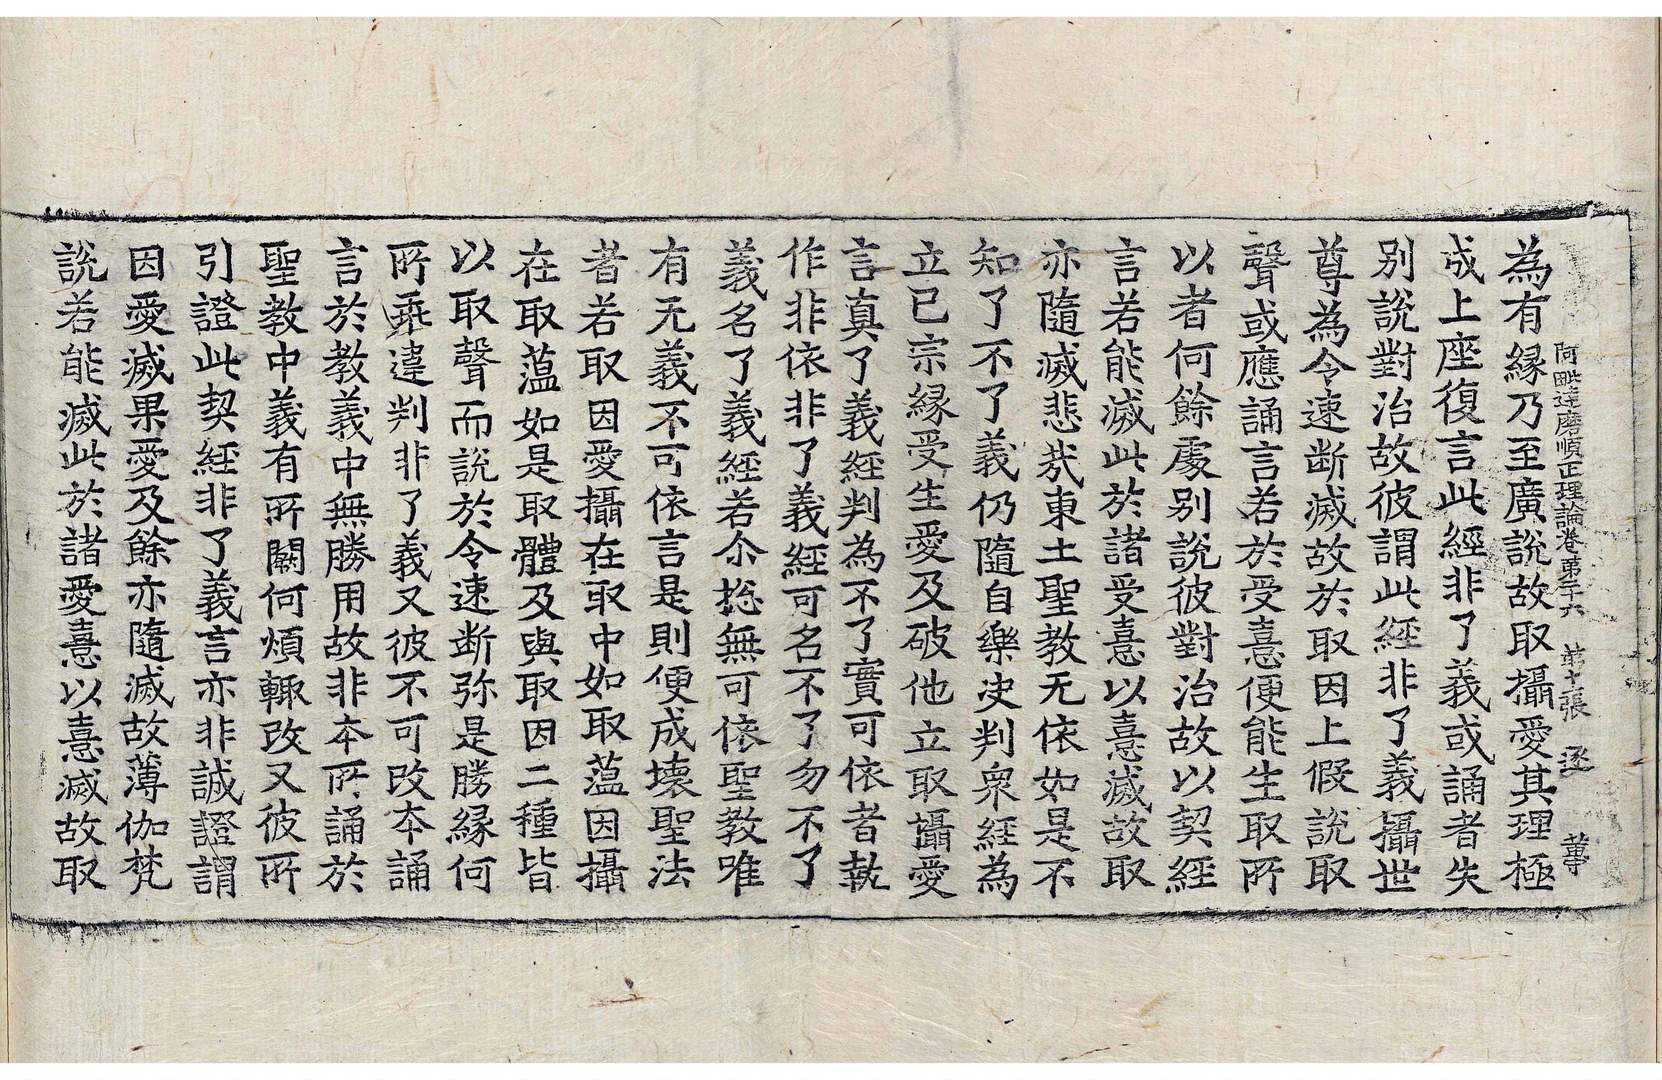 阿毗達磨順正理論卷第二十六 第十張 逐
為有緣乃至廣說故取攝愛其理極
成上座復言此經非了義或誦者失
別說對治故彼謂此經非了義攝世
尊為令速断滅故於取因上假說取
聲或應誦言若於受憙便能生取所
以者何餘處别說彼對治故以契經
言若能滅此於諸受憙以憙滅故取
亦隨滅悲㢤東土聖教无依如是不
知了不了義仍隨自樂决判衆經為
立已宗緣受生愛及破他立取攝愛
言真了義經判為不了實可依者執
作非依非了義經可名不了勿不了
義名了義經若尒揔無可依聖教唯
有无義不可依言是則便成壞聖法
者若取因愛攝在取中如取薀因攝
在取薀如是取體及與取因二種皆
以取聲而說於令速断弥是勝緣何
所乘違判非了義又彼不可改本誦
言於教義中無勝用故非本所誦於
聖教中義有所闕何煩輙改又彼所
引證此契經非了義言亦非誠證謂
因愛滅果愛及餘亦隨滅故薄伽梵
說若能滅此於諸愛憙以憙滅故取